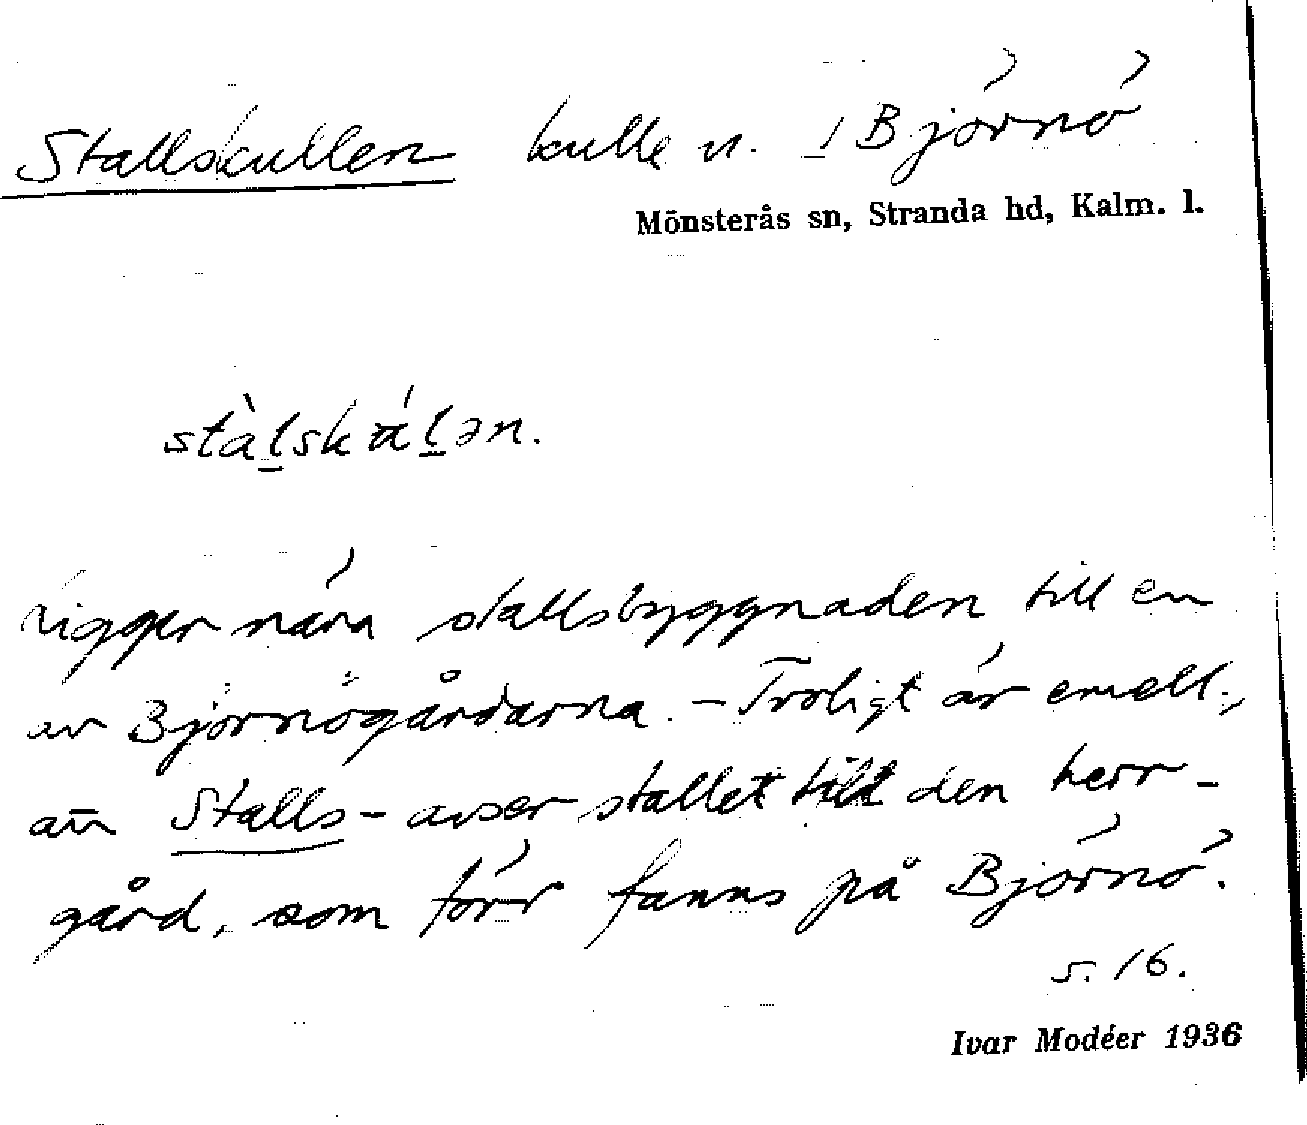 Stallskullen kulle n. Björnö
Mönsterås sn, Stranda hd, Kalm. l.
stàlskálən.
Ligger nära stallsbyggnaden till en
av Björnögårdarna. – Troligt är emell.,
att Stalls- avser stallet till den herr-
gård, som förr fanns på Björnö.
s. 16.
Ivar Modéer 1936